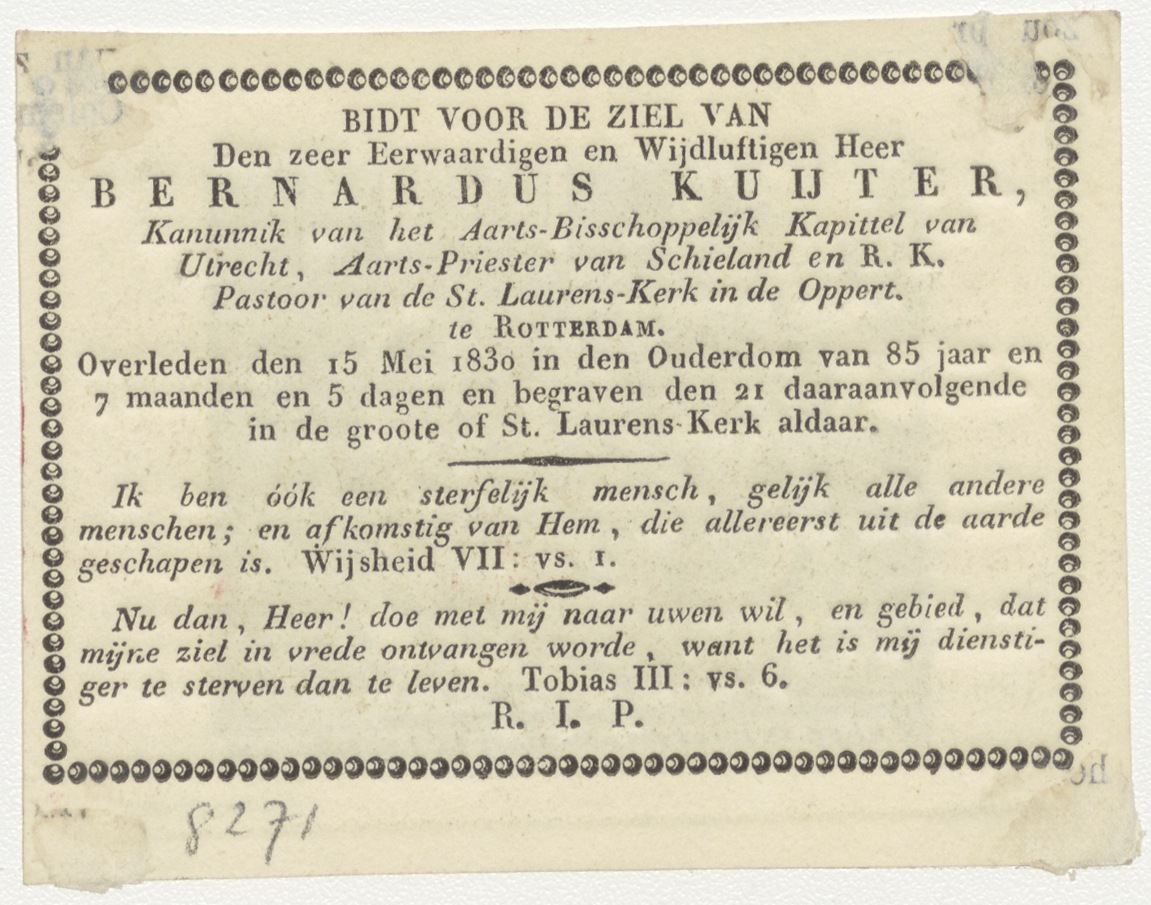 BIDT VOOR DE ZIEL VAN
Den zeer Eerwaardigen en Wijdluftigen Heer
BERNARDUS KUIJTER,
Kanunnik van het Aarts-Bisschoppelijk Kapittel van
Utrecht, Aarts-Priester van Schieland en R. K.
Pastoor van de St. Laurens-Kerk in de Oppert.
te ROTTERDAM.
Overleden den 15 Mei 1830 in den Ouderdom van 85 jaar en
7 maanden en 5 dagen en begraven den 21 daaraanvolgende
in de groote of St. Laurens-Kerk aldaar.
Ik ben óók een sterfelijk mensch, gelijk alle andere
menschen; en afkomstig van Hem, die allereerst uit de aarde
geschapen is. Wijsheid VII: vs. 1.
Nu dan, Heer! doe met mij naar uwen wil, en gebied, dat
mijne ziel in vrede ontvangen worde, want het is mij diensti-
ger te sterven dan te leven. Tobias III: vs. 6.
R. I. P.
8271